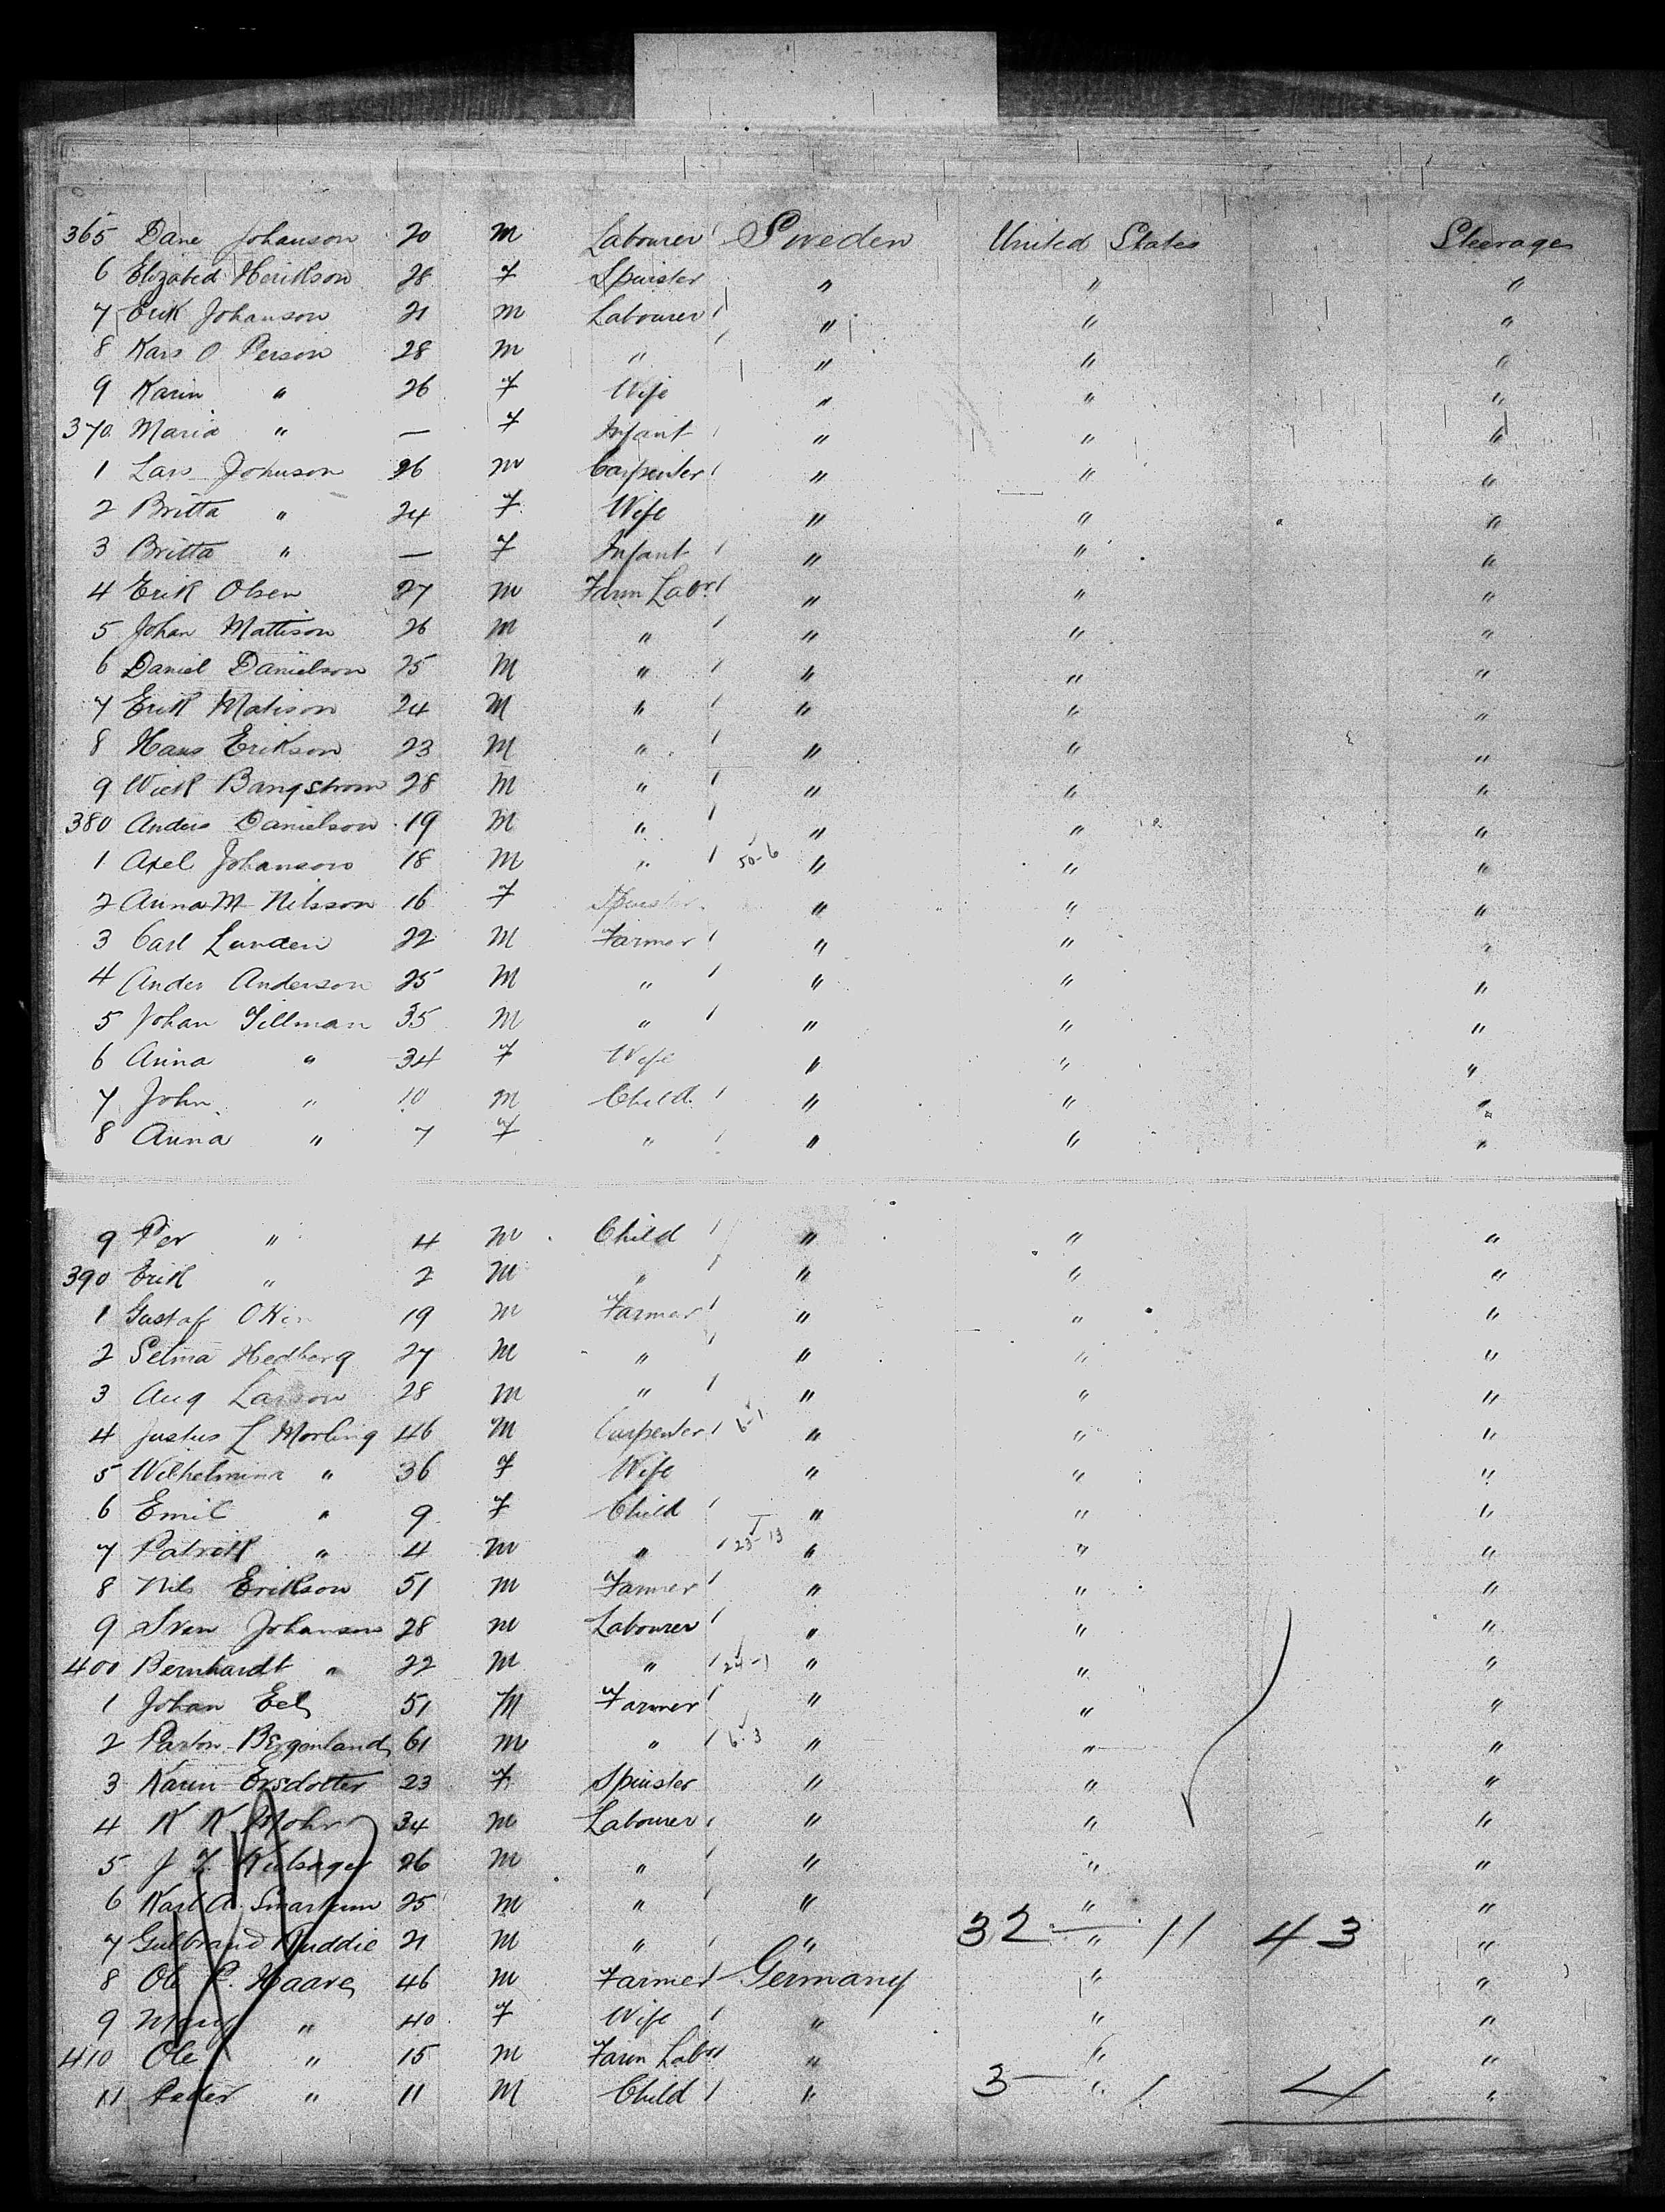 365 Dane Johanson 20 M Labourer Sweden United States Steerage
6 Elizabed Herikson 28 F Spinster " " "
7 Erik Johanson 21 M Labourer " " "
8 Kars O Person 28 M " " " "
9 Karin " 26 F Wife " " "
370 Maria " — F Infant " " "
1 Lars Johnson 26 M Carpenter " " "
2 Britta " 24 F Wife " " "
3 Britta " — F Infant " " "
4 Erik Olsen 27 M Farm Labr " " "
5 Johan Mattison 26 M " " " "
6 Daniel Danielson 25 M " " " "
7 Erik Matison 24 M " " " "
8 Hans Erikson 23 M " " " "
9 Wick Bangstrom 28 M " " " "
380 Anders Danielson 19 M " " " "
1 Axel Johanson 18 M " 50-6 " " "
2 Anna M Nilsson 16 F Spinster " " "
3 Carl Lunden 22 M Farmer " " "
4 Ander Anderson 25 M " " " "
5 Johan Tillman 35 M " " " "
6 Anna " 34 F Wife " " "
7 John " 10 M Child " " "
8 Anna " 7 F " " " "
9 Per " 4 M Child " " "
390 Erik " 2 M " " " "
1 Gustaf 19 M Farmer " " "
2 Selma Hedberg 27 M " " " "
3 Aug Larson 28 M " " " "
4 Justus L Morling 46 M Carpenter 6-1 " " "
5 Wilhelmina " 36 F Wife " " "
6 Emil " 9 F Child " " "
7 Patrik " 4 M " 23-13 " " "
8 Nils Erikson 51 M Farmer " " "
9 Sven Johanson 28 M Labourer " " "
400 Bernhardt " 22 M " 24-1 " " "
1 Johan Eel 51 M Farmer " " "
2 Parton Bergenland 61 M " 6-3 " " "
3 Karin Ersdotter 23 F Spinster " " "
4 K K Mohr 34 M Labourer " " "
5 J 26 M " " " "
6 Karl A. 25 M " " " "
7 Gulbrand Ruddie 21 M " " 32 — " 11 43 "
8 Ole P. Haare 46 M Farmer Germany " "
9 Mary " 40 F Wife " " "
410 Ole " 15 M Farm Labr " " "
11 Peder " 11 M Child " 3 — " 1 4 "